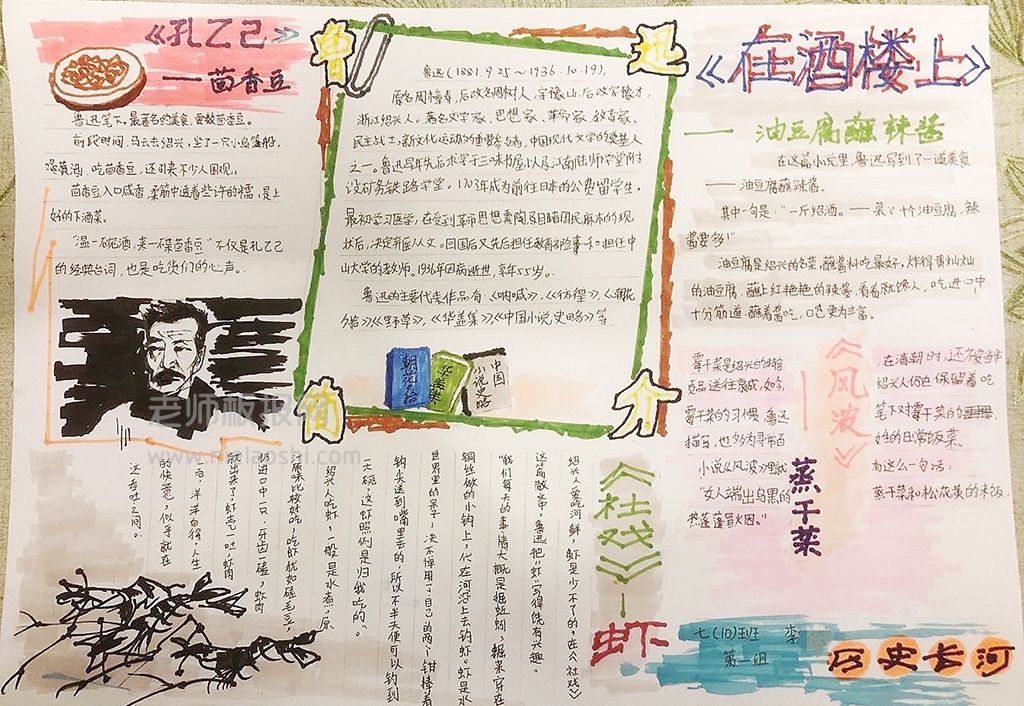 《孔乙己》
——茴香豆
鲁迅笔下,最著名的美食,要数茴香豆。
前段时间,马云去绍兴,坐了一只小乌篷船,
喝黄酒,吃茴香豆,还引来不少人围观。
茴香豆入口咸香,柔韧中透着些许的糯,是上
好的下酒菜。
"温一碗酒,来一碟茴香豆"不仅是孔乙己
的经典台词,也是吃货们的心声。
鲁迅简介
鲁迅(1881.9.25~1936.10.19),
原名周樟寿,后改名周树人,字豫山,后改字豫才,
浙江绍兴人。著名文学家、思想家、革命家、教育家、
民主战士,新文化运动的重要参与者,中国现代文学的奠基人
之一。鲁迅早年先后求学于三味书屋以及江南陆师学堂附
设矿务铁路学堂。1903年成为前往日本的公费留学生,
最初学习医学,在受到革命思想熏陶及目睹国民麻木的现
状后,决定弃医从文。回国后又先后担任教育部佥事
山大学的老师。1936年因病逝世,享年55岁。
鲁迅的主要代表作品有《呐喊》,《彷徨》,《朝花
夕拾》《野草》,《华盖集》《中国小说史略》等
朝花夕拾
华盖集
中国
小说史略
《在酒楼上》
——油豆腐蘸辣酱
在这篇小说里,鲁迅写到了一道美食
——油豆腐蘸辣酱。
其中一句是:"一斤绍酒。——菜?十个油豆腐,辣
酱要多!"
油豆腐是绍兴的名菜,蘸酱料吃最好,炸得黄灿灿
的油豆腐,蘸上红艳艳的辣酱,看着就馋人,吃进口中
十分筋道,蘸着酱吃,口感更为丰富。
《风波》
——
蒸干菜
霉干菜是绍兴的特
贡品送往京城,如今,
霉干菜的习惯,鲁迅
描写,也多为寻常百
小说《风波》里就
"女人端出乌黑的
热蓬蓬冒火烟。"
在清朝时,还不被当作
绍兴人仍在保留着吃
笔下对霉干菜的
姓的日常饭菜。
有这么一句话:
蒸干菜和松花黄的米饭,
《社戏》——
虾
绍兴人爱吃河鲜,虾是少不了的,在《社戏》
这篇散文中,鲁迅把"虾"写得饶有兴趣。
"我们每天的事情大概是掘蚯蚓,掘来穿在
铜丝做的小钩上,伏在河沿上去钓虾。虾是水
世界里的呆子,决不惮用了自己的两个钳捧着
钩尖送到嘴里去的,所以不半天便可以钓到
一大碗。这虾照例是归我吃的。"
绍兴人吃虾,一般是水煮,原
汁原味比较好吃,吃虾犹如嗑瓜子,
扔进口中一只,牙齿一磕,虾肉
就出来了,虾壳一吐,虾肉
一吞,洋洋自得,人生
的快意,似乎就在
这吞吐之间。
七(10)班 李
第一组
历史长河
老师板报网
www.nwlaoshi.com